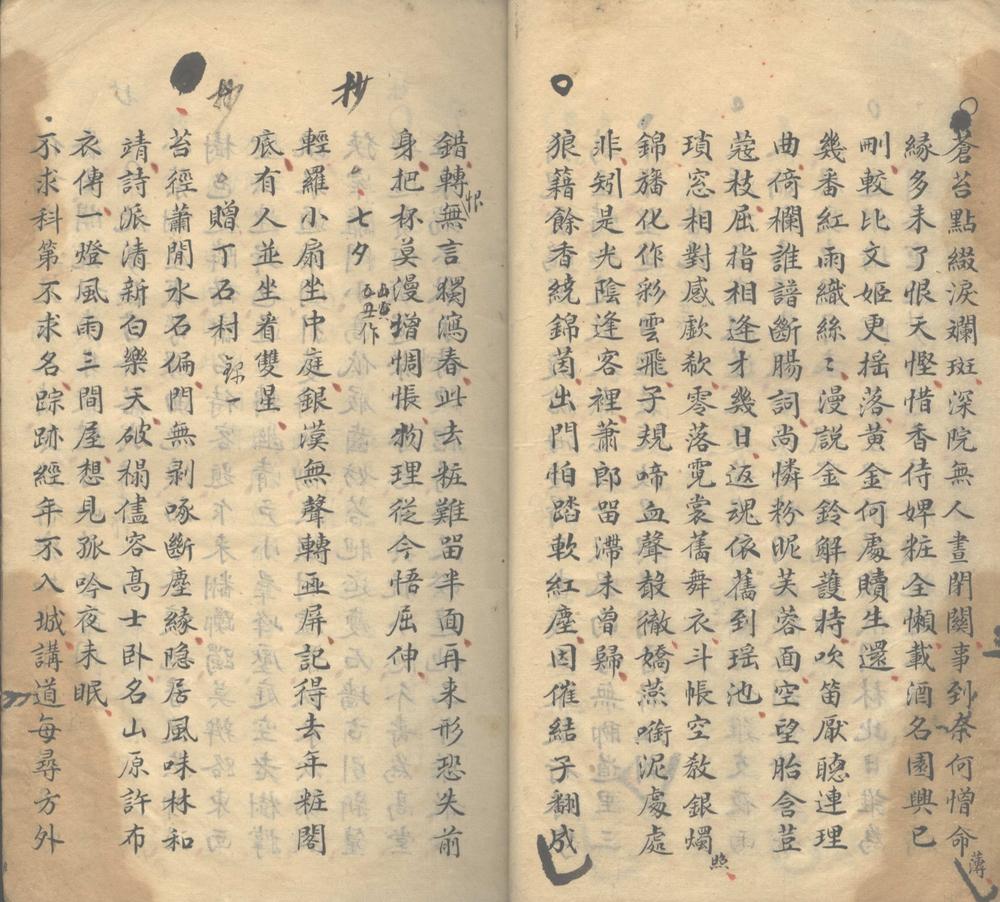 蒼苔點綴淚斕斑深院無人晝閉關事到奈何憎命薄
緣多未了恨天慳惜香侍婢粧全懶載酒名園興已
刪較比文姬更搖落黃金何處贖生還
幾番紅雨織絲〻漫說金鈴解護持吹笛厭聽連理
曲倚欄誰譜斷腸詞尚憐粉昵芙蓉面空望胎含荳
蔻枝屈指相逢才幾日返魂依舊到瑶池
瑣窓相對感歔欷零落霓裳舊舞衣斗帳空教銀燭照
錦旛化作彩雲飛子規啼血聲聲徹嬌燕啣泥處處
非矧是光陰逢客裡蕭郎畱滯未曾歸
狼籍餘香繞錦茵出門怕踏軟紅塵因催結子翻成
錯轉恨無言獨瀉春此去粧難畱半面再來形恐失前
身把杯莫漫增惆悵物理從今悟屈伸
抄
七夕
丑作
輕羅小扇坐中庭銀漢無聲轉畫屏記得去年粧閣
底有人並坐看雙星
抄
贈丁石村
錄一
苔徑蕭閒水石偏門無剥啄斷塵緣隐居風味林和
靖詩派清新白樂天破榻儘容高士卧名山原許布
衣傳一燈風雨三間屋想見孤吟夜未眠
不求科第不求名踪跡經年不入城講道每尋方外